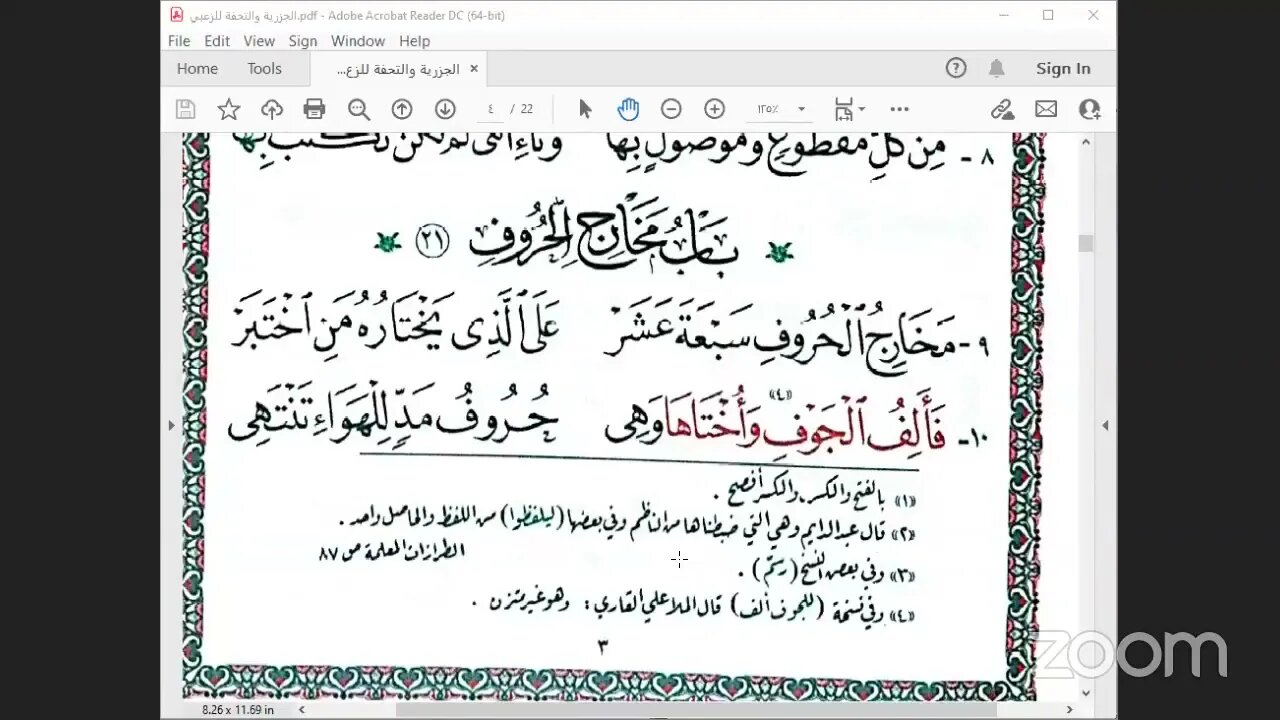 الجزرية والتحفة للزعبي.pdf - Adobe Acrobat Reader DC (64-bit)
File Edit View Sign Window Help
Home Tools الجزرية والتحفة للزع... × Sign In
٤ / 22 ١٢٥٪
٨- مِن كُلِّ مَقْطُوعٍ وَمَوْصُولٍ بِهَا وَتَاءِ أُنْثَى لَمْ تَكُنْ تُكْتَبْ بِهَا
بَابُ مَخَارِجِ الْحُرُوفِ (٢١)
٩- مَخَارِجُ الْحُرُوفِ سَبْعَةَ عَشَرْ عَلَى الَّذِى يَخْتَارُهُ مَنِ اخْتَبَرْ
١٠- فَأَلِفُ الْجَوْفِ «٤» وَأُخْتَاهَا وَهِى حُرُوفُ مَدٍّ لِلْهَوَاءِ تَنْتَهِى
«١» بالفتح والكسر، والكسر أفصح .
«٢» قال عبد الدايم وهي التي ضبطناها من الناظم وفي بعضها (ليلفظوا) من اللفظ والحاصل واحد .
الطرازات المعلمة ص ٨٧
«٣» وفي بعض النسخ (رسم) .
«٤» وفي نسخة (للجوف ألف) قال الملا علي القاري : وهو غير متزن .
٣
8.26 x 11.69 in
zoom